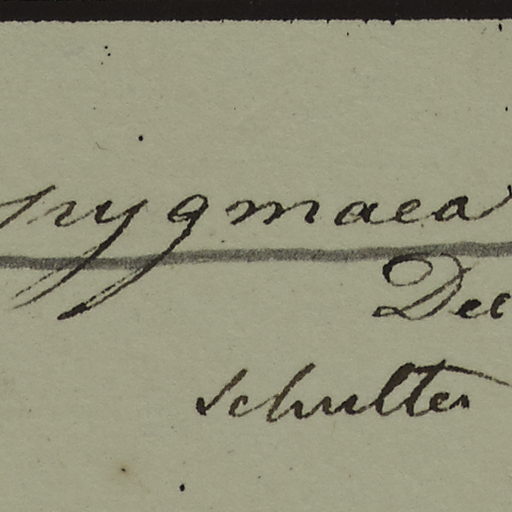 pygmaea
Dec
schulter